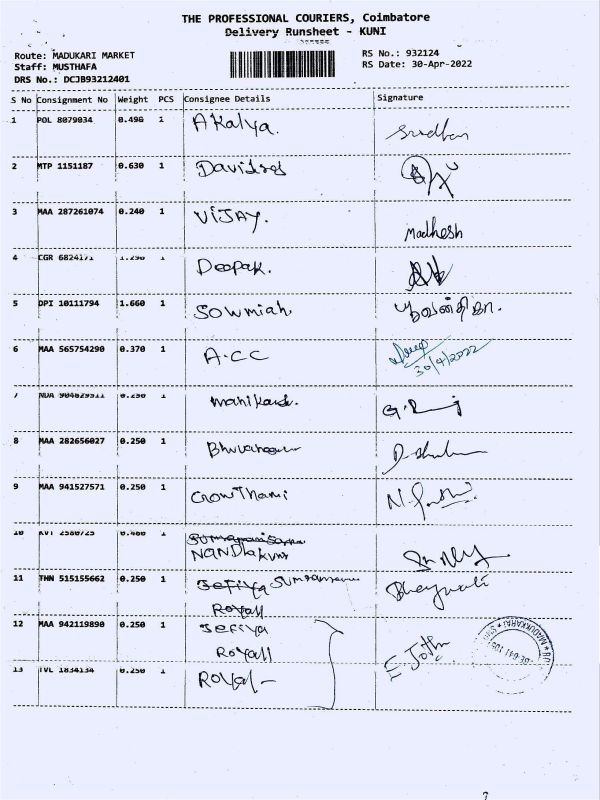 THE PROFESSIONAL COURIERS, Coimbatore
Delivery Runsheet - KUNI
Route: MADUKARI MARKET
Staff: MUSTHAFA
DRS No.: DCJB93212401
RS No.: 932124
RS Date: 30-Apr-2022
S No Consignment No Weight PCS Consignee Details Signature
1 POL 8079034 0.490 1 Akalya.
2 MTP 1151187 0.630 1
3 MAA 287261074 0.240 1 VIJAY. Madhesh
4 CGR 6824171 1.290 1 Deepak.
5 DPI 10111794 1.660 1 Sowmiah
6 MAA 565754290 0.370 1 A.CC
30/4/2022
7 NDA 904629911 0.250 1
8 MAA 282656027 0.250 1
9 MAA 941527571 0.250 1 Gowthami
10 KVT 2580725 0.460 1
11 THN 515155662 0.250 1 Sefiya
Royall
12 MAA 942119890 0.250 1 Sefiya
Royall
13 TVL 1834134 0.250 1 Royal -